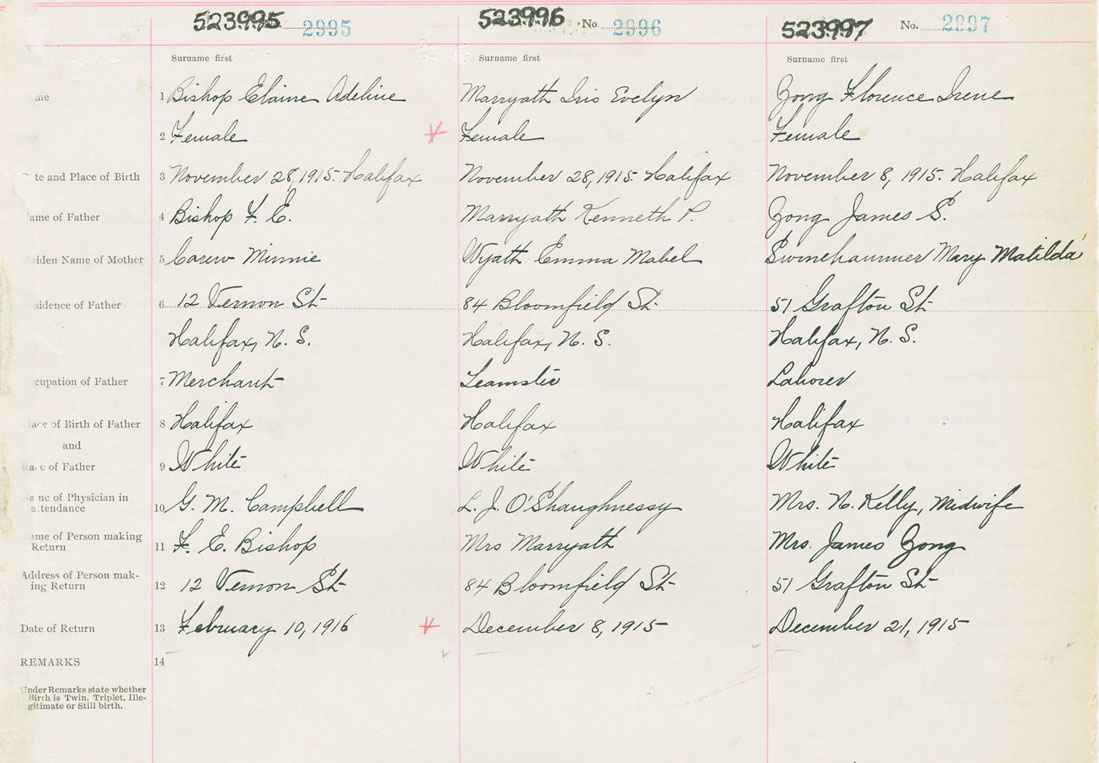 523995 2995 523996 No. 2996 523997 No. 2997
Surname first Surname first Surname first
1 Bishop Elaine Adeline Marryath Iris Evelyn Zong Florence Irene
2 Female Female Female
te and Place of Birth 3 November 28, 1915. Halifax November 28, 1915. Halifax November 8, 1915. Halifax
ame of Father 4 Bishop F. E. Marryath Kenneth P. Zong James S.
iden Name of Mother 5 Carew Minnie Wyath Emma Mabel Swinehammer Mary Matilda
sidence of Father 6 12 Vernon St. 84 Bloomfield St. 51 Grafton St.
Halifax, N. S. Halifax, N. S. Halifax, N. S.
cupation of Father 7 Merchant Teamster Laborer
lace of Birth of Father 8 Halifax Halifax Halifax
and
Race of Father 9 White White White
Name of Physician in
attendance 10 G. M. Campbell L. J. O'Shaughnessy Mrs. N. Kelly, Midwife
ame of Person making
Return 11 F. E. Bishop Mrs Marryath Mrs. James Zong
Address of Person mak-
ing Return 12 12 Vernon St. 84 Bloomfield St. 51 Grafton St.
Date of Return 13 February 10, 1916 December 8, 1915 December 21, 1915
REMARKS 14
Under Remarks state whether
Birth is Twin, Triplet, Ille-
gitimate or Still birth.